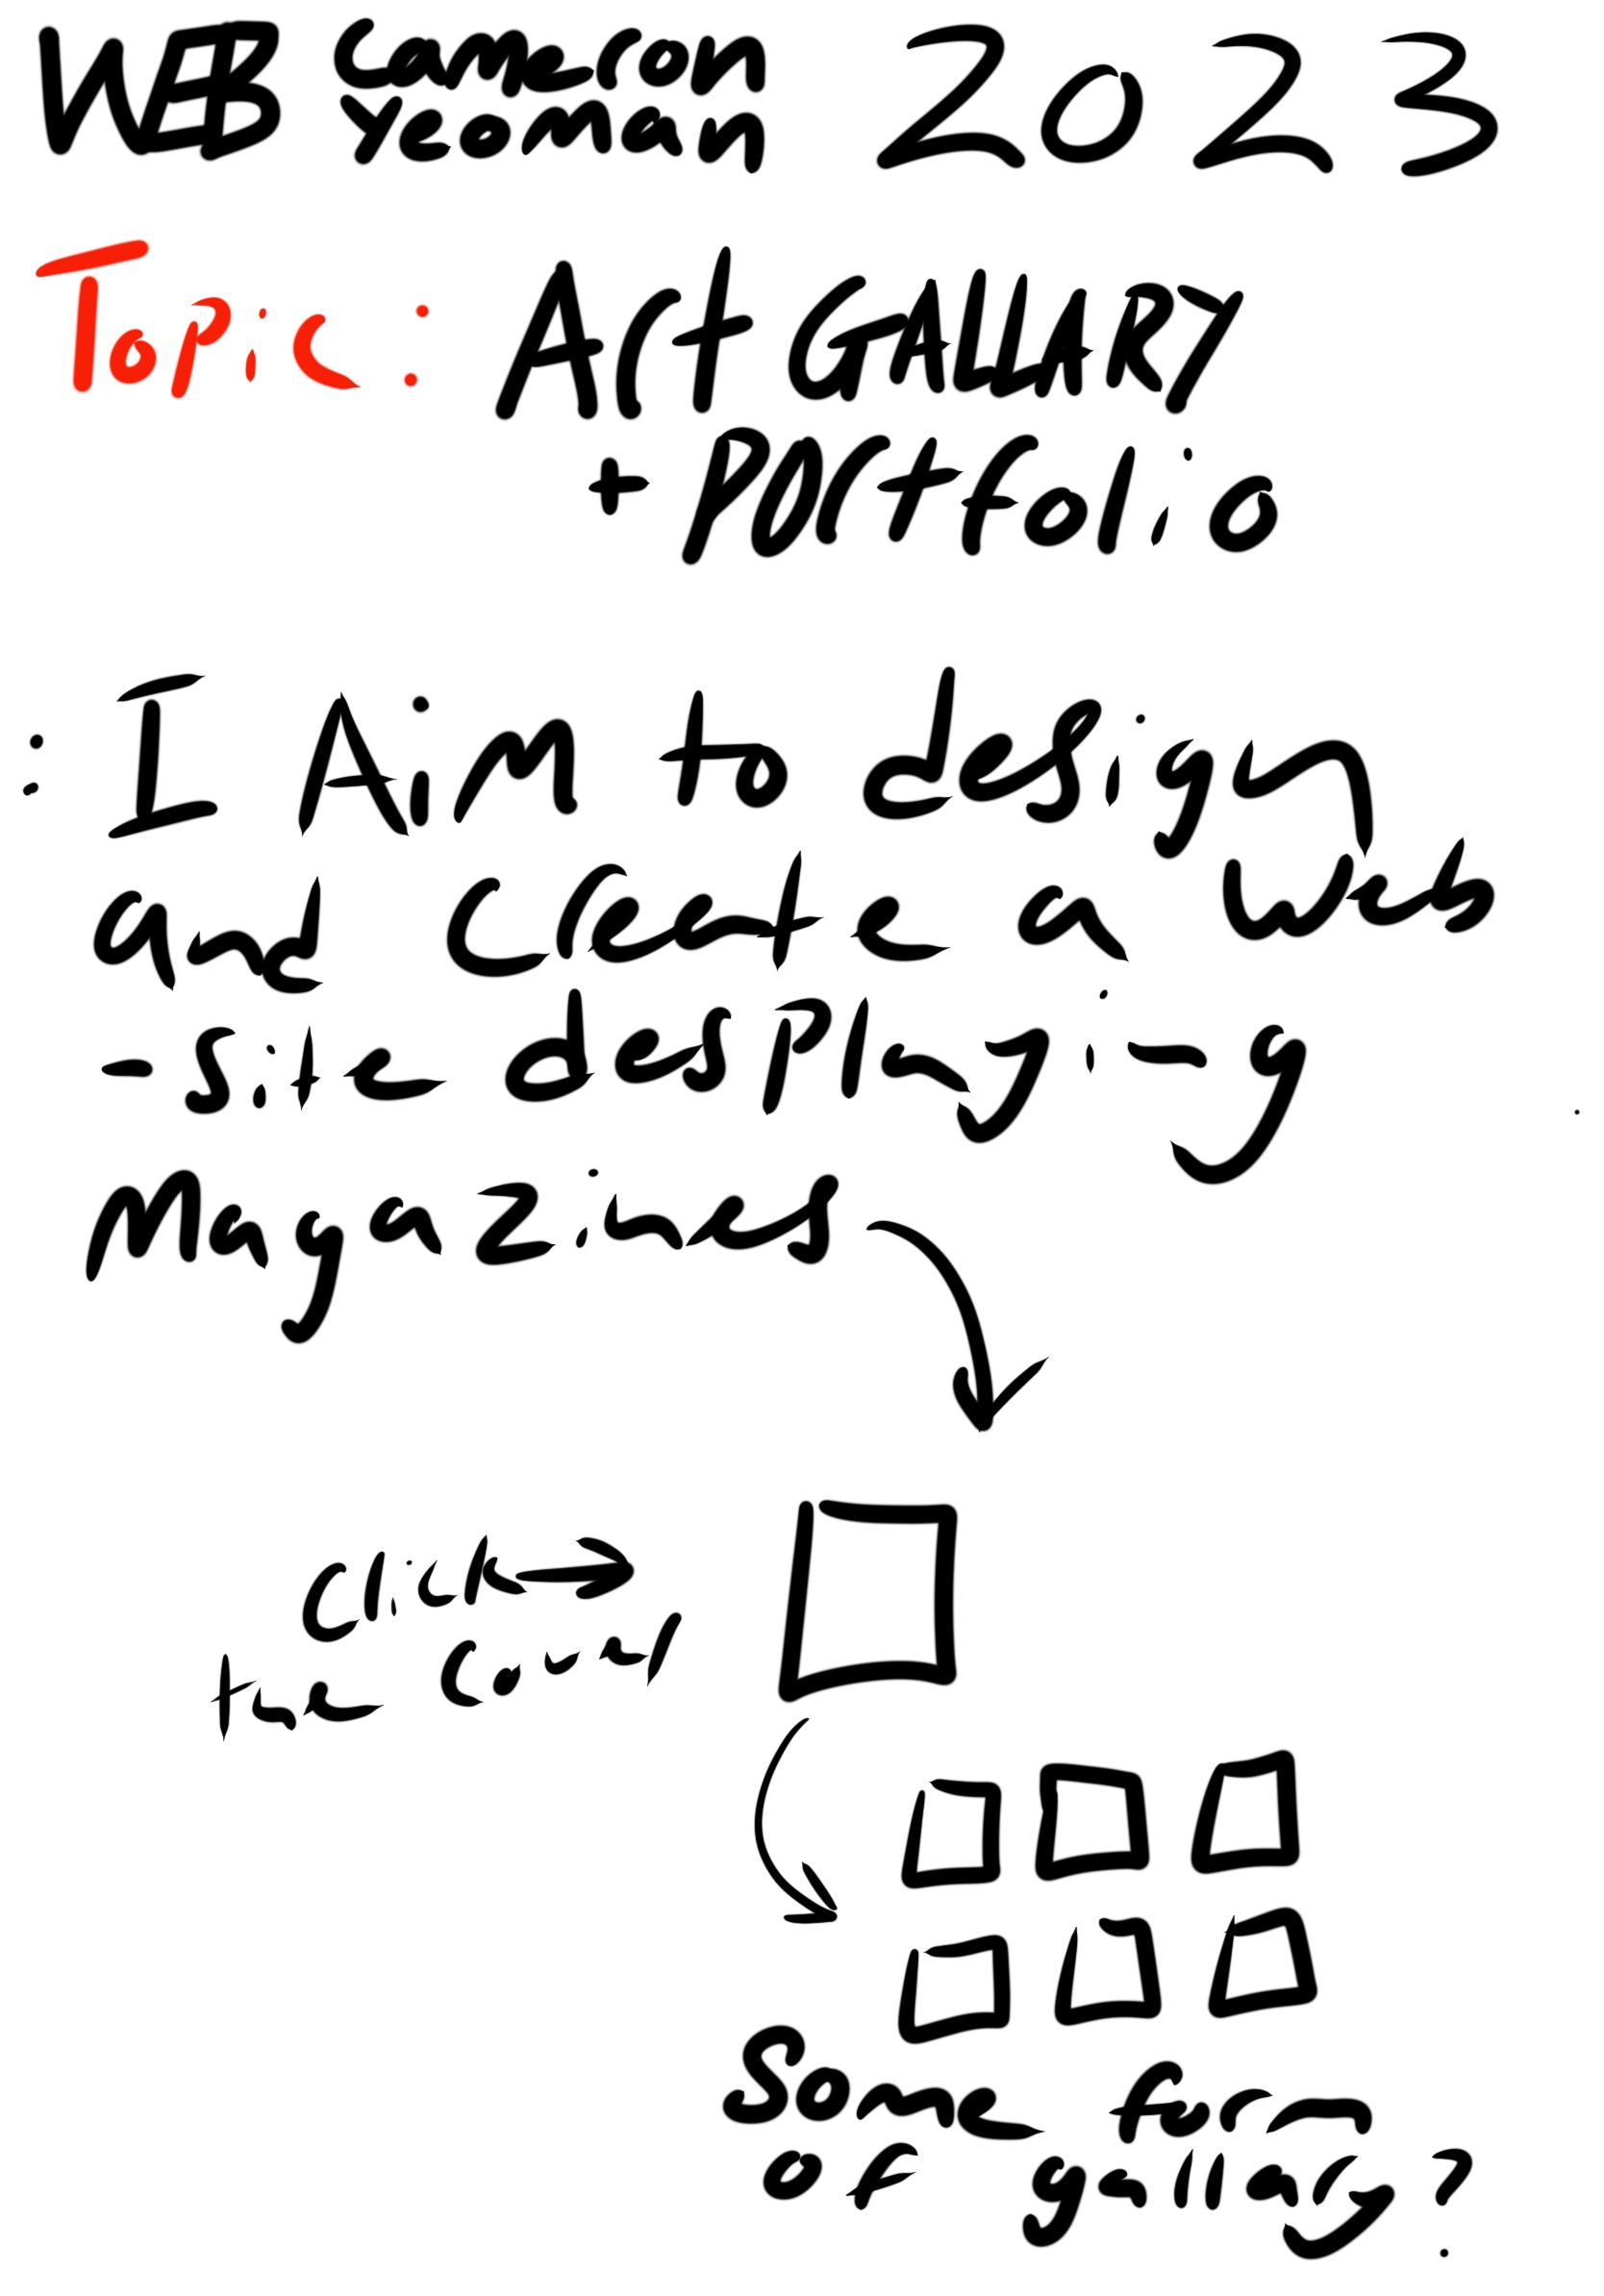 WEB Cameron Yeoman 2023
Topic: Art GALLARY
+ Portfolio
: I Aim to design
and Create a Web
-site desPlaying
Magazines
Click
the Cover
Some form
of gallary?